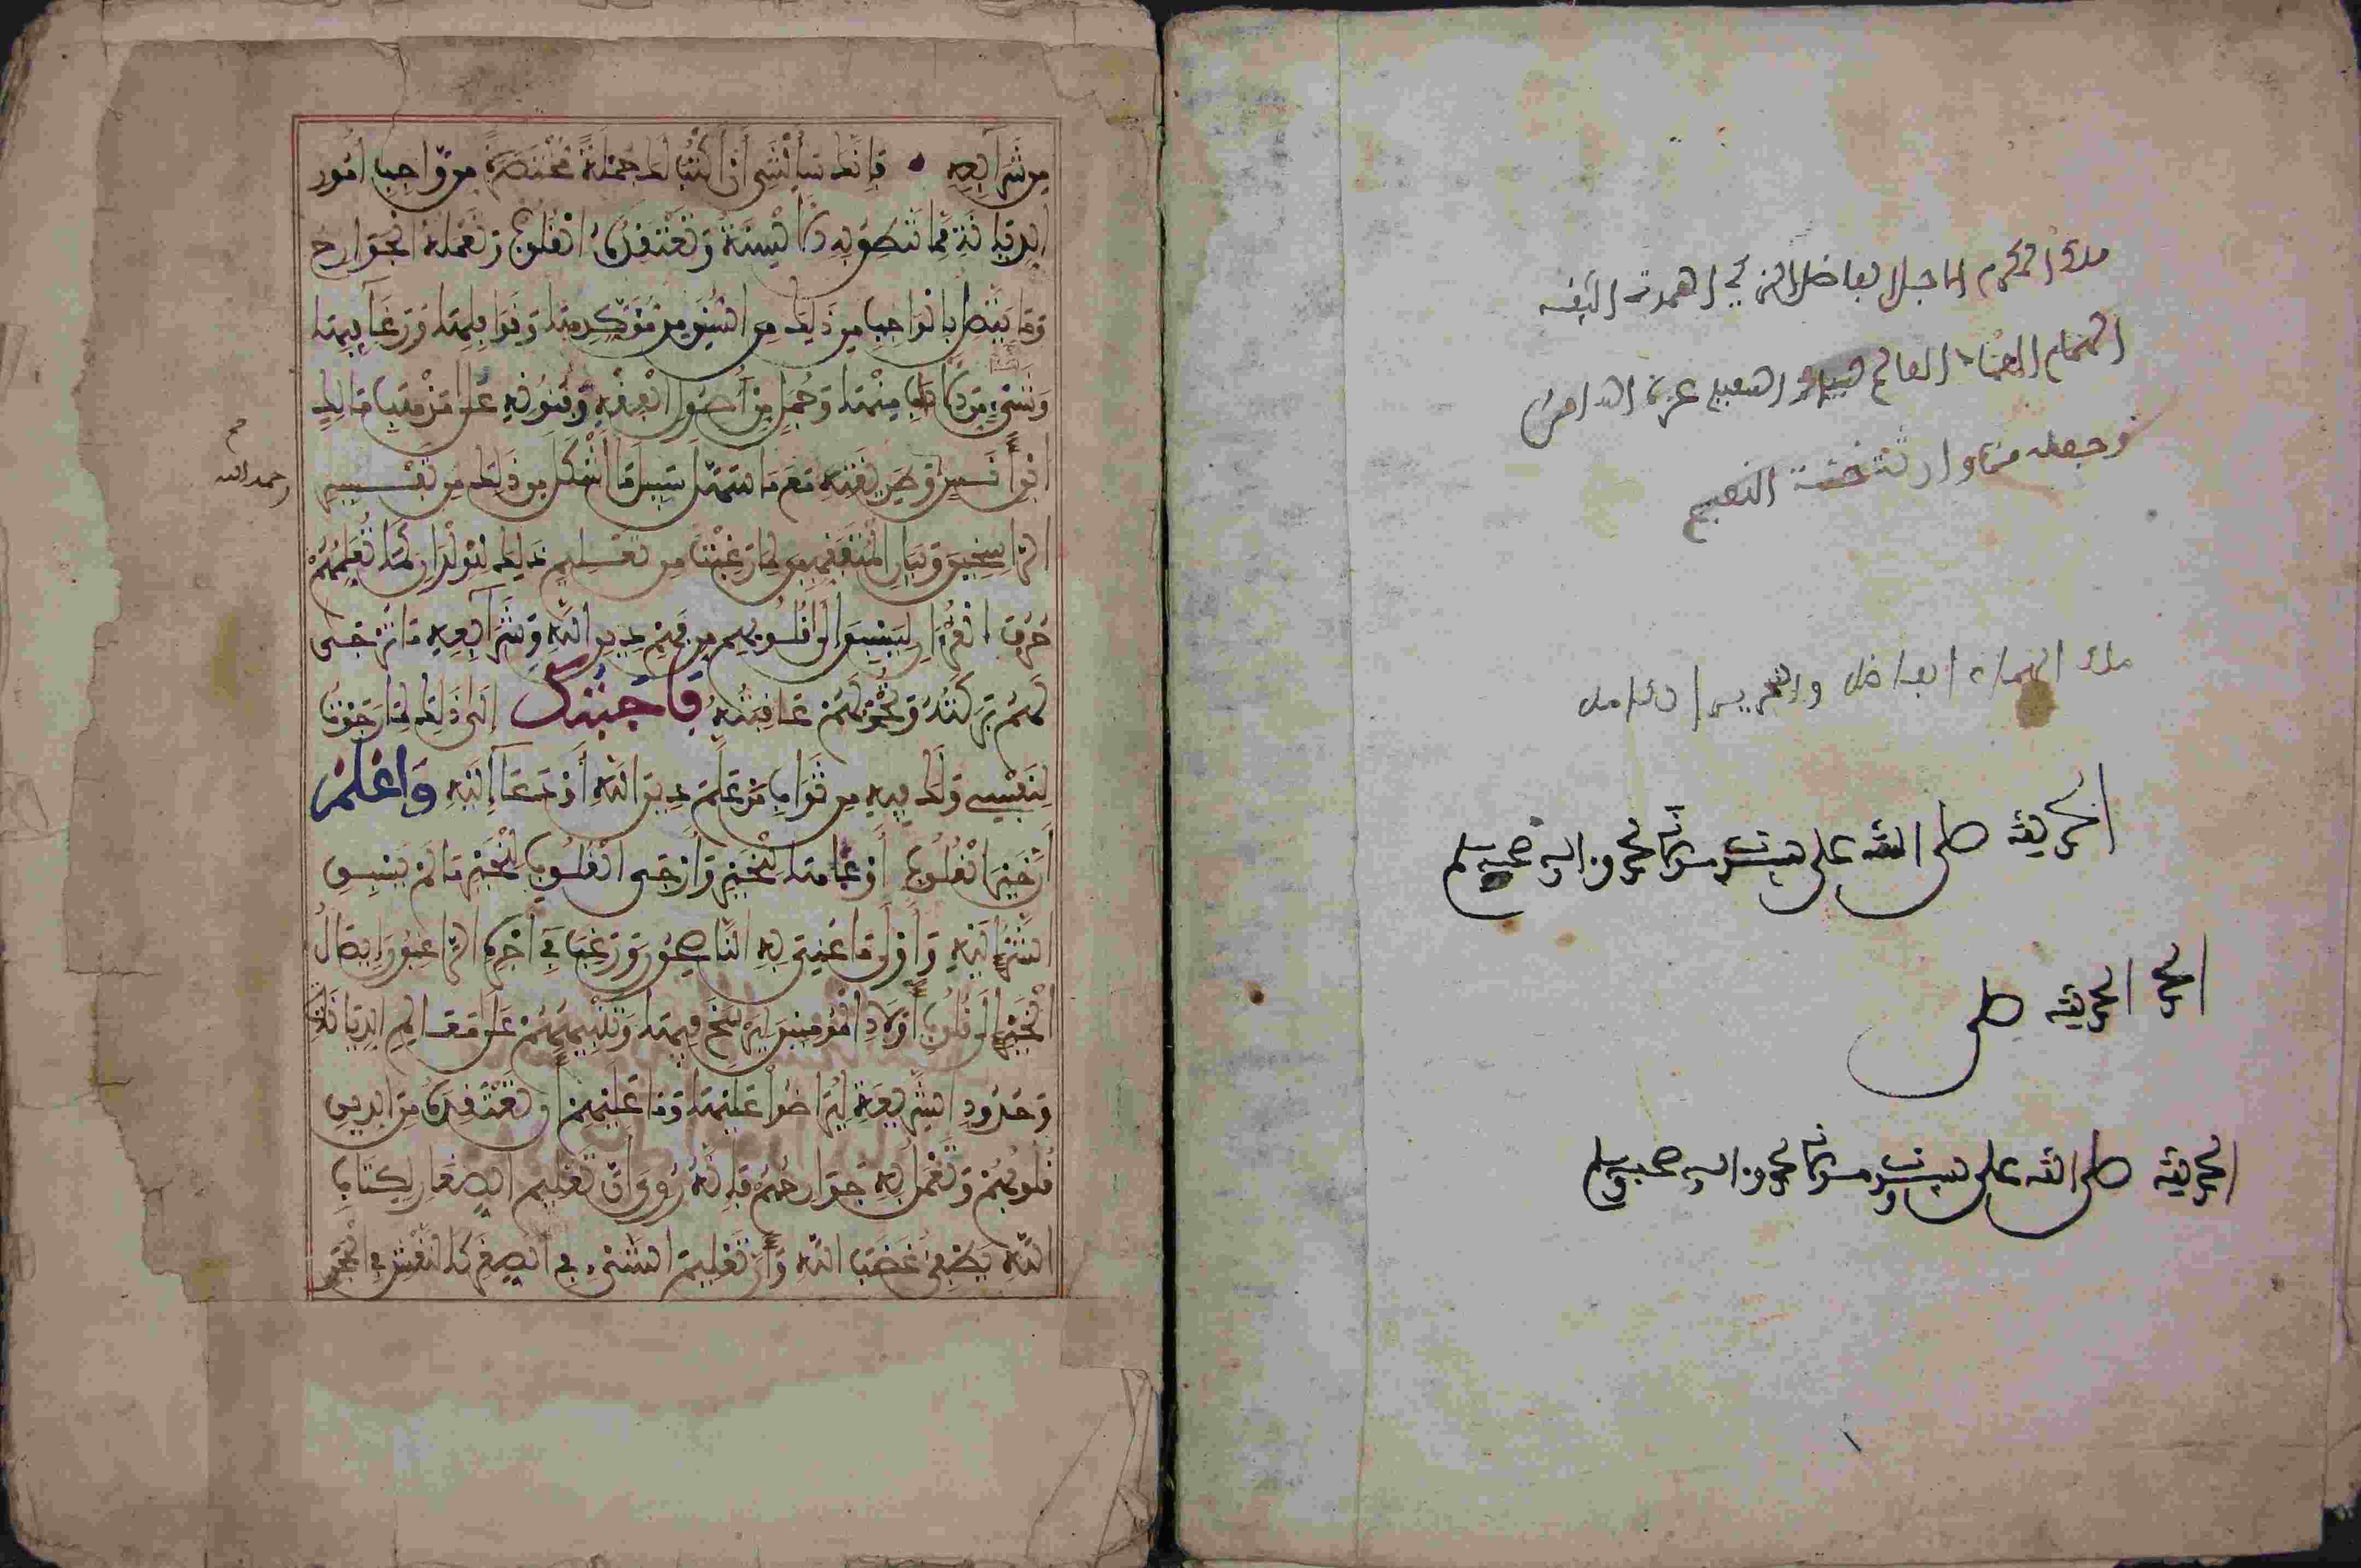 ملك المكرم الماجد الفاضل الزكي
الهمام العالم الفقيه
ملك الهمام الفاضل والنحرير الكامل
الحمد لله صلى الله على سيدنا ومولانا محمد وءاله وصحبه وسلم
الحمد الحمد لله صلى
الحمد لله صلى الله على سيدنا ومولانا محمد وءاله وصحبه وسلم
من شرائعه • فإنك سألتني أن أكتب لك جملة مختصرة من واجب أمور
الديانة مما تنطق به الألسنة وتعتقده القلوب وتعمله الجوارح
وما يتصل بالواجب من ذلك من السنن من مؤكدها ونوافلها ورغائبها
وشيء من الآداب منها وجمل من أصول الفقه وفنونه على مذهب مالك
ابن أنس وطريقته مع ما سهل سبيل ما أشكل من ذلك من تفسير
رحمه الله
الراسخين وبيان المتفقهين لما رغبت من تعليم ذلك للولدان كما تعلمهم
حروف القرآن ليسبق إلى قلوبهم من فهم دين الله وشرائعه ما ترجى
لهم بركته وتحمد لهم عاقبته فأجبتك إلى ذلك لما رجوت
لنفسي ولك فيه من ثواب من علم دين الله أو دعا إليه واعلم
أن خير القلوب أوعاها للخير وأرجى القلوب للخير ما لم يسبق
الشر إليه وأولى ما عني به الناصحون ورغب في أجره الراغبون إيصال
الخير إلى قلوب أولاد المؤمنين ليرسخ فيها وتنبيههم على معالم الديانة
وحدود الشريعة ليراضوا عليها وما عليهم أن تعتقده من الدين
قلوبهم وتعمل به جوارحهم فإنه روي أن تعليم الصغار لكتاب
الله يطفئ غضب الله وأن تعليم الشيء في الصغر كالنقش في الحجر